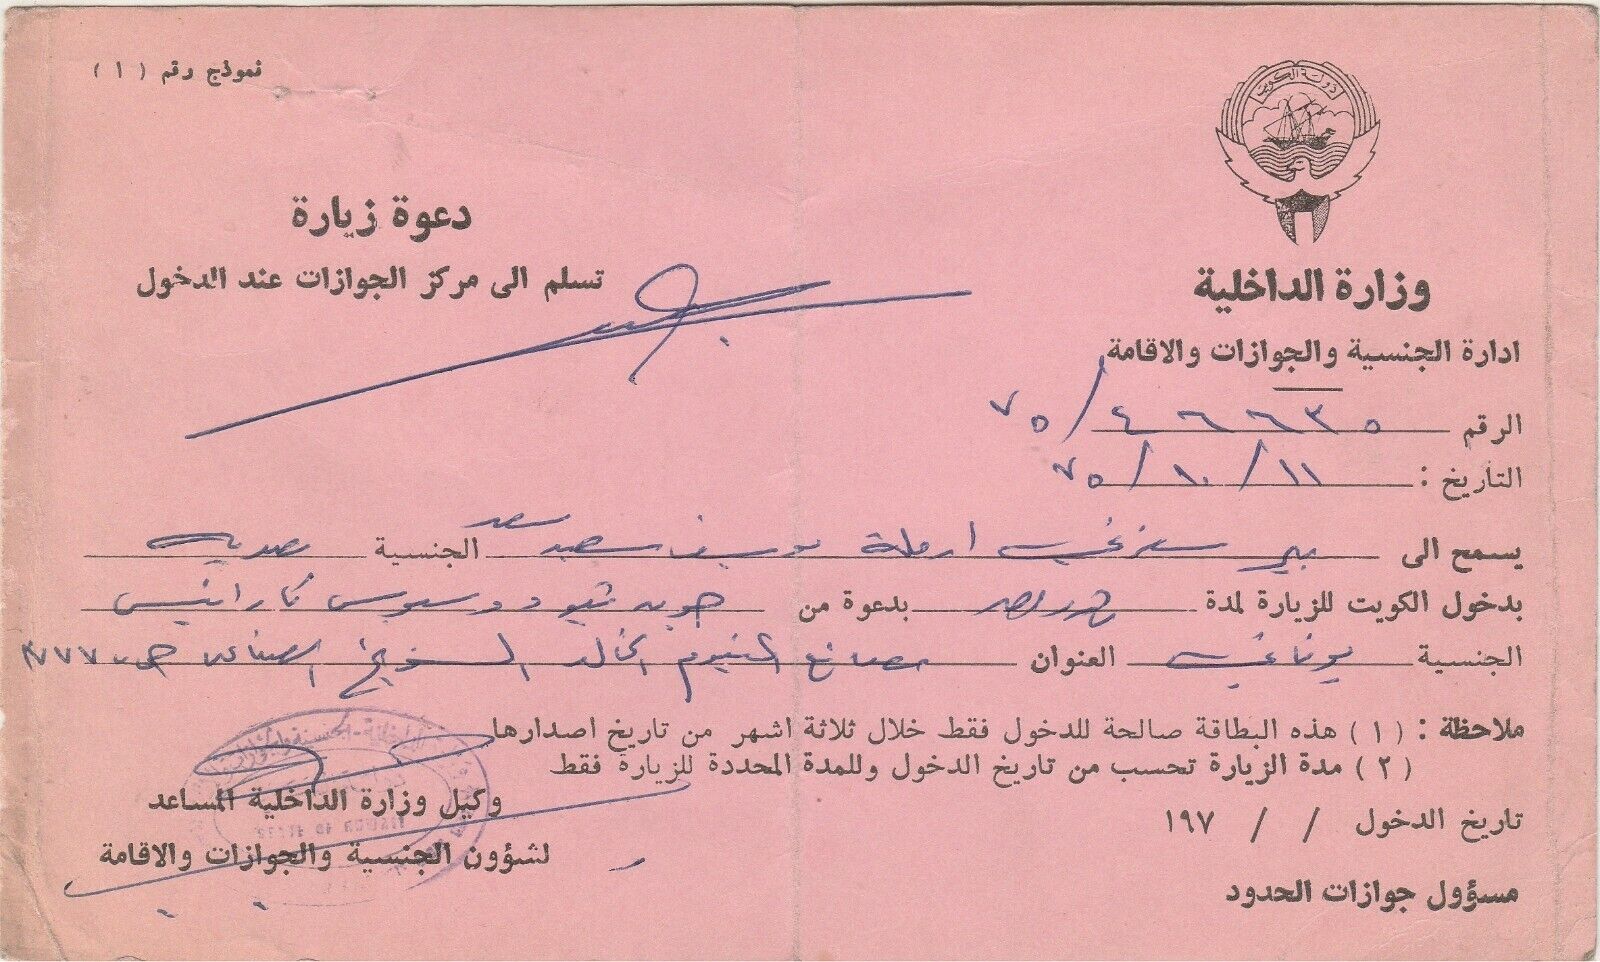 نموذج رقم ( ١ )
دولة الكويت
دعوة زيارة
تسلم الى مركز الجوازات عند الدخول
وزارة الداخلية
ادارة الجنسية والجوازات والاقامة
الرقم ٤٦٦٣٥ / ٧٥
التاريخ : ١١ / ١٠ / ٧٥
يسمح الى ارملة يوسف سعيد سعد الجنسية مصرية
بدخول الكويت للزيارة لمدة شهر واحد بدعوة من
الجنسية يوناني العنوان مصانع المنيوم الخالد الشويخ الصناعية
ملاحظة : ( ١ ) هذه البطاقة صالحة للدخول فقط خلال ثلاثة اشهر من تاريخ اصدارها
( ٢ ) مدة الزيارة تحسب من تاريخ الدخول وللمدة المحددة للزيارة فقط
تاريخ الدخول / / ١٩٧
مسؤول جوازات الحدود
وكيل وزارة الداخلية المساعد
لشؤون الجنسية والجوازات والاقامة